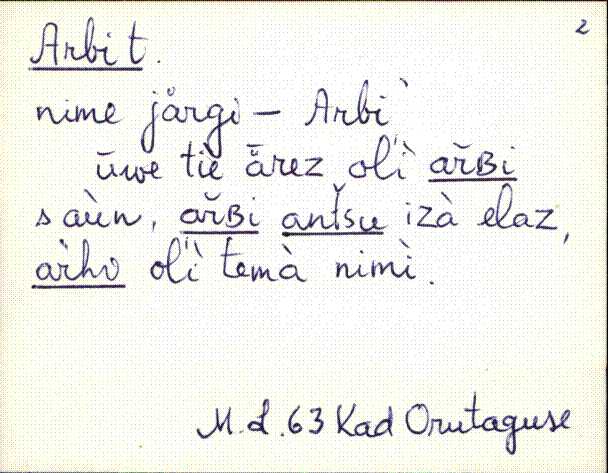 2
Arbit.
nime järgi – Arbi`
ūwe tìe ārez oľì ař̆ʙi
saùn, ař̆ʙi anťsu izà elaz,
àrho oľì temà nimì.
M.L.63 Kad Orutaguse